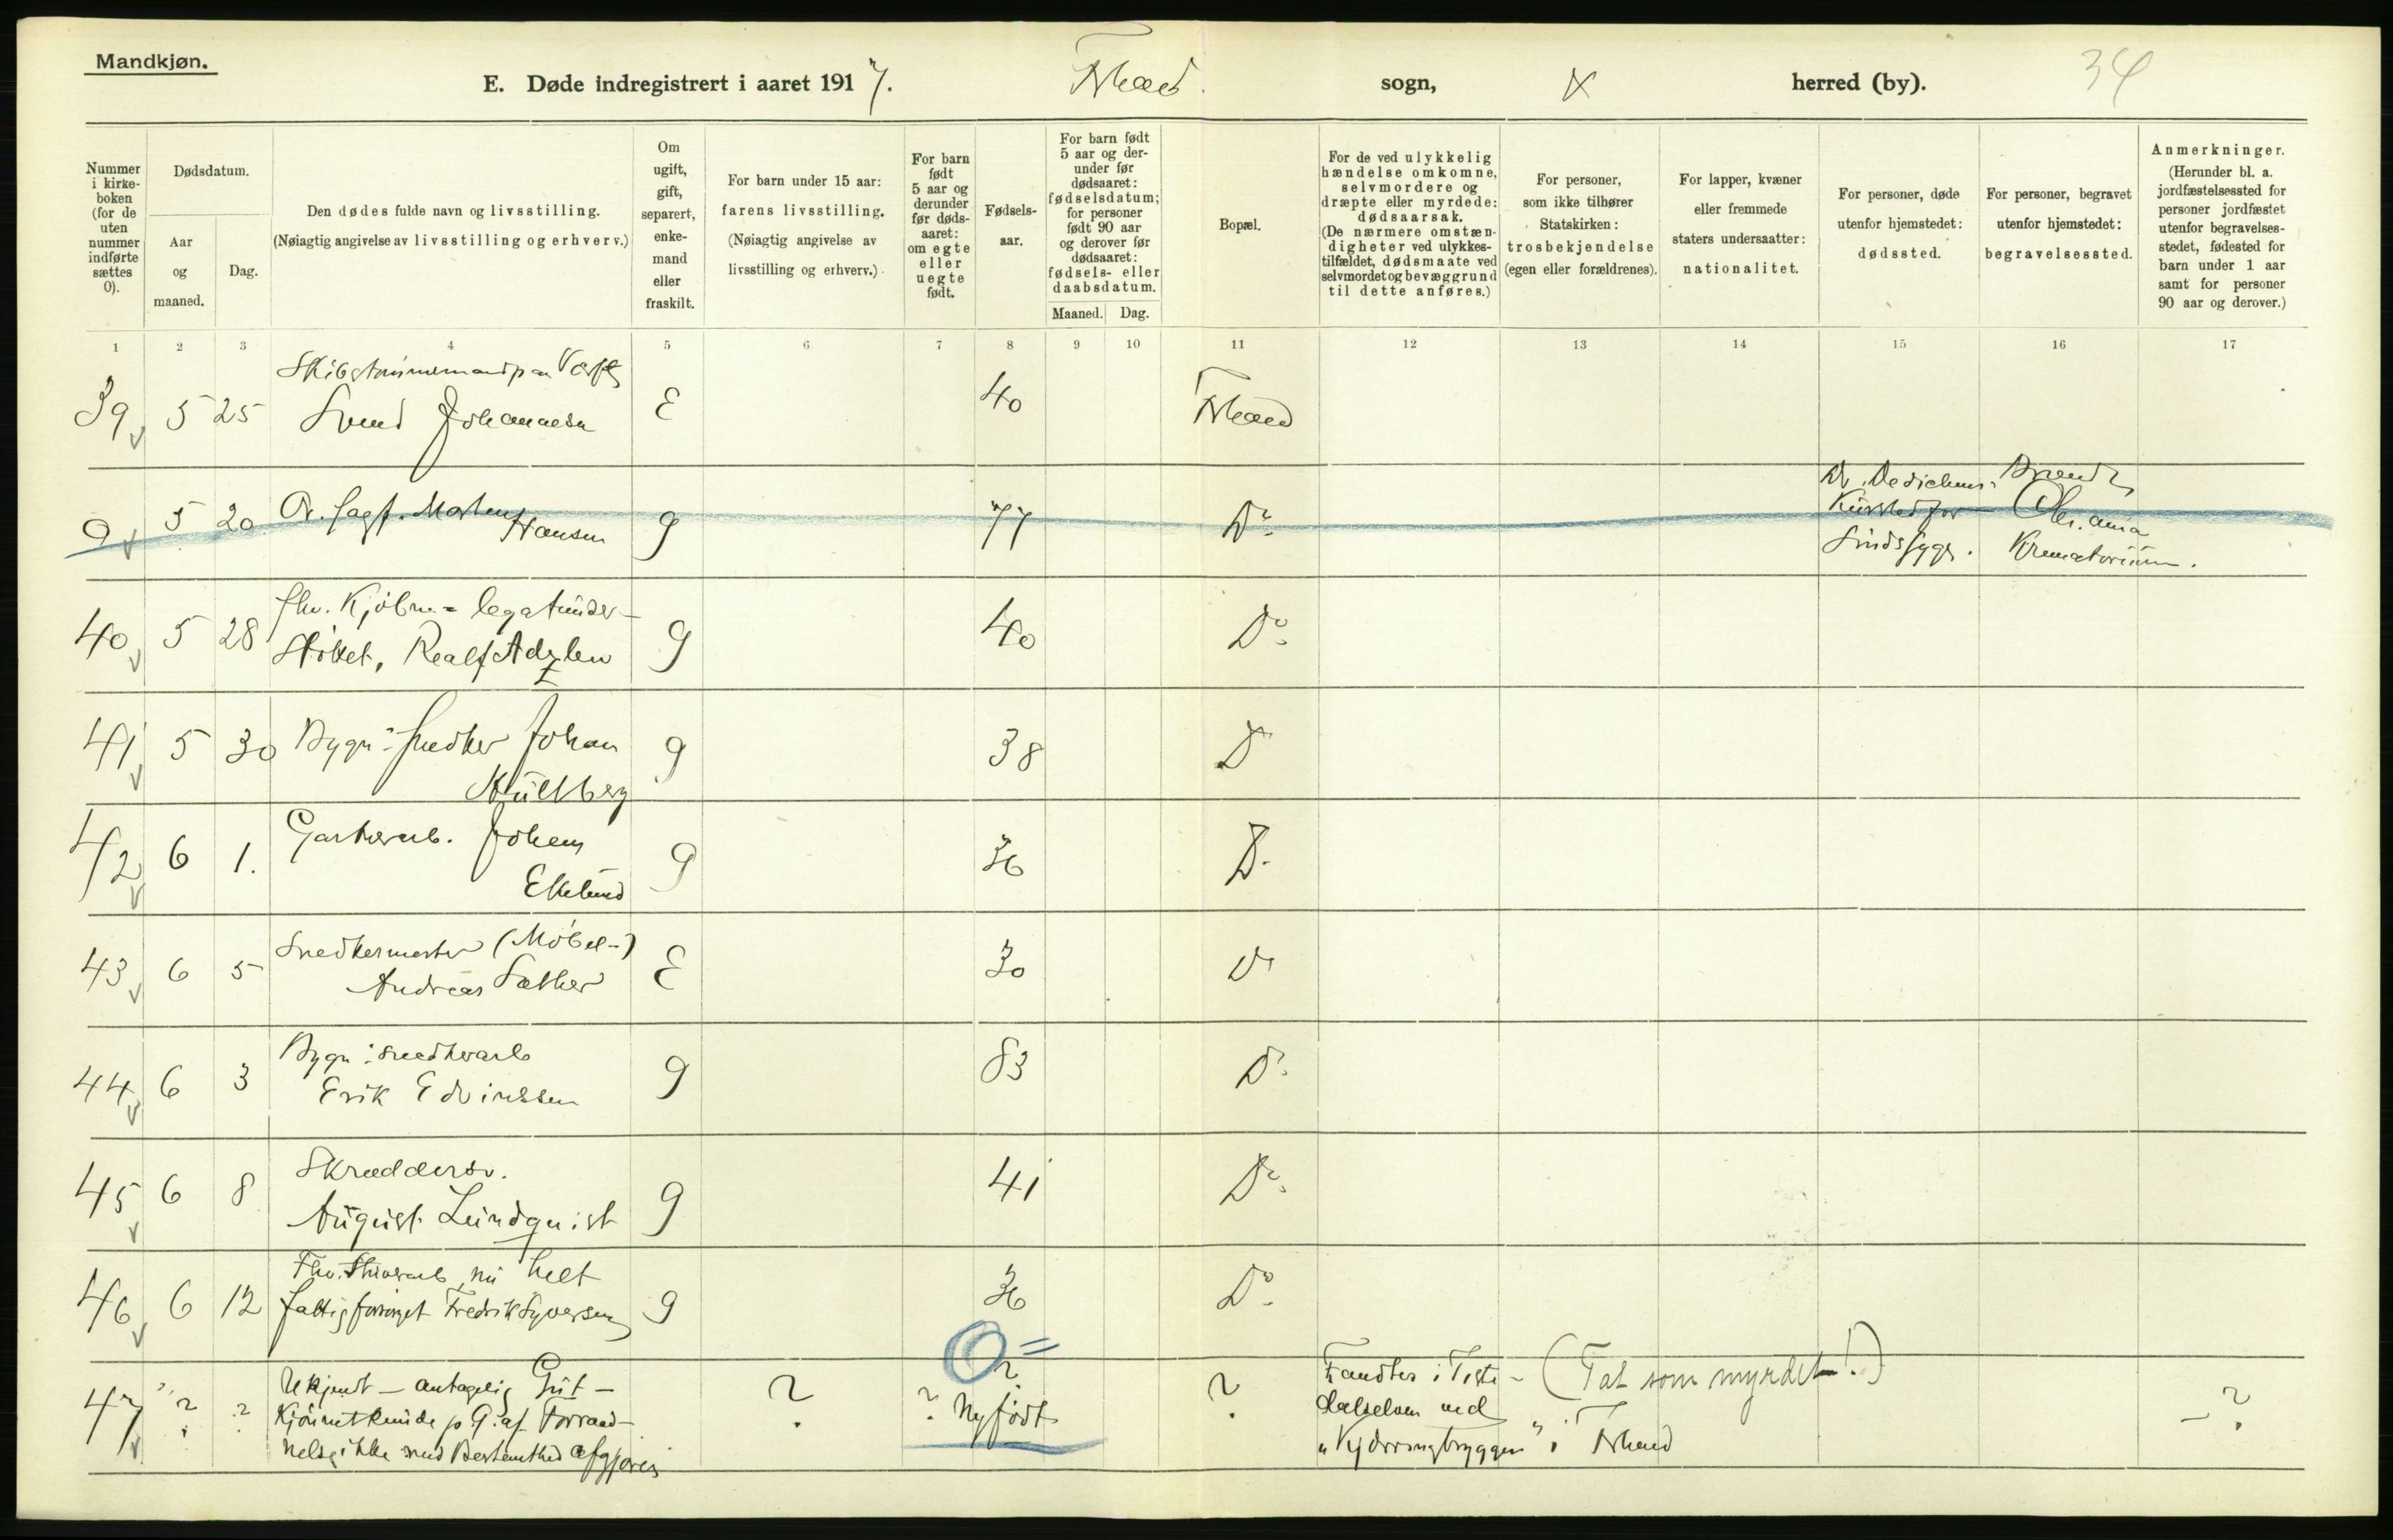 Mandkjøn.
E. Døde indregistrert i aaret 1917. Fhald. sogn, X herred (by). 34
Nummer i kirke-boken (for de uten nummer indførte sættes 0).
Dødsdatum.
Aar og maaned.
Dag.
Den dødes fulde navn og livsstilling.
(Nøiagtig angivelse av livsstilling og erhverv.)
Om ugift, gift, separert, enke-mand eller fraskilt.
For barn under 15 aar:
farens livsstilling.
(Nøiagtig angivelse av
livsstilling og erhverv.)
For barn født 5 aar og derunder før døds-aaret: om egte eller uegte født.
Fødsels-aar.
For barn født 5 aar og der-under før dødsaaret: fødselsdatum; for personer født 90 aar og derover før dødsaaret: fødsels- eller daabsdatum.
Maaned. Dag.
Bopæl.
For de ved ulykkelig
hændelse omkomne,
selvmordere og
dræpte eller myrdede:
dødsaarsak.
(De nærmere omstæn-
digheter ved ulykkes-
tilfældet, dødsmaate ved
selvmordet og bevæggrund
til dette anføres.)
For personer,
som ikke tilhører
Statskirken:
trosbekjendelse
(egen eller forældrenes).
For lapper, kvæner
eller fremmede
staters undersaatter:
nationalitet.
For personer, døde
utenfor hjemstedet:
dødssted.
For personer, begravet
utenfor hjemstedet:
begravelsessted.
Anmerkninger.
(Herunder bl. a.
jordfæstelsessted for
personer jordfæstet
utenfor begravelses-
stedet, fødested for
barn under 1 aar
samt for personer
90 aar og derover.)
1 2 3 4 5 6 7 8 9 10 11 12 13 14 15 16 17
Skibstømmermand paa Værft
39 5 25 Svend Johannesen E 40 Fhald
0 5 20 Or. sagf. Morten Hansen g 77 Do
Dr. Dedichens
Kursted for
Sindssyge.
Brændt
Chr.ania
Krematorium.
fhv. Kjøbm = legatunder-
40 5 28 støttet, Realf Adzlew g 40 Do
41 5 30 Bygn: snedker Johan g 38 D
Kullberg
42 6 1. Gartnerarb. Johan g 36 D.
Ekelund
Snedkermester (Møbel-)
43 6 5 Andreas Sæther E 30 Do
Bygn: snedkerarb
44 6 3 Erik Edvinssen g 83 Do
Skræddersv.
45 6 8 August Lundquist g 41 Do
Fhv. arb, nu helt
46 6 12 fattigforsørget Fredrik Syversen g 36 Do
0 =
47 ? ? Ukjendt - antagelig Gut -
Kjønnet kunde p. G. af Forraad-
nelse ikke med Bestemthed afgjøres
? ? Nyfødt ?
Fandtes i
ved
i Fhald
(Tat som myrdet!)
- ?